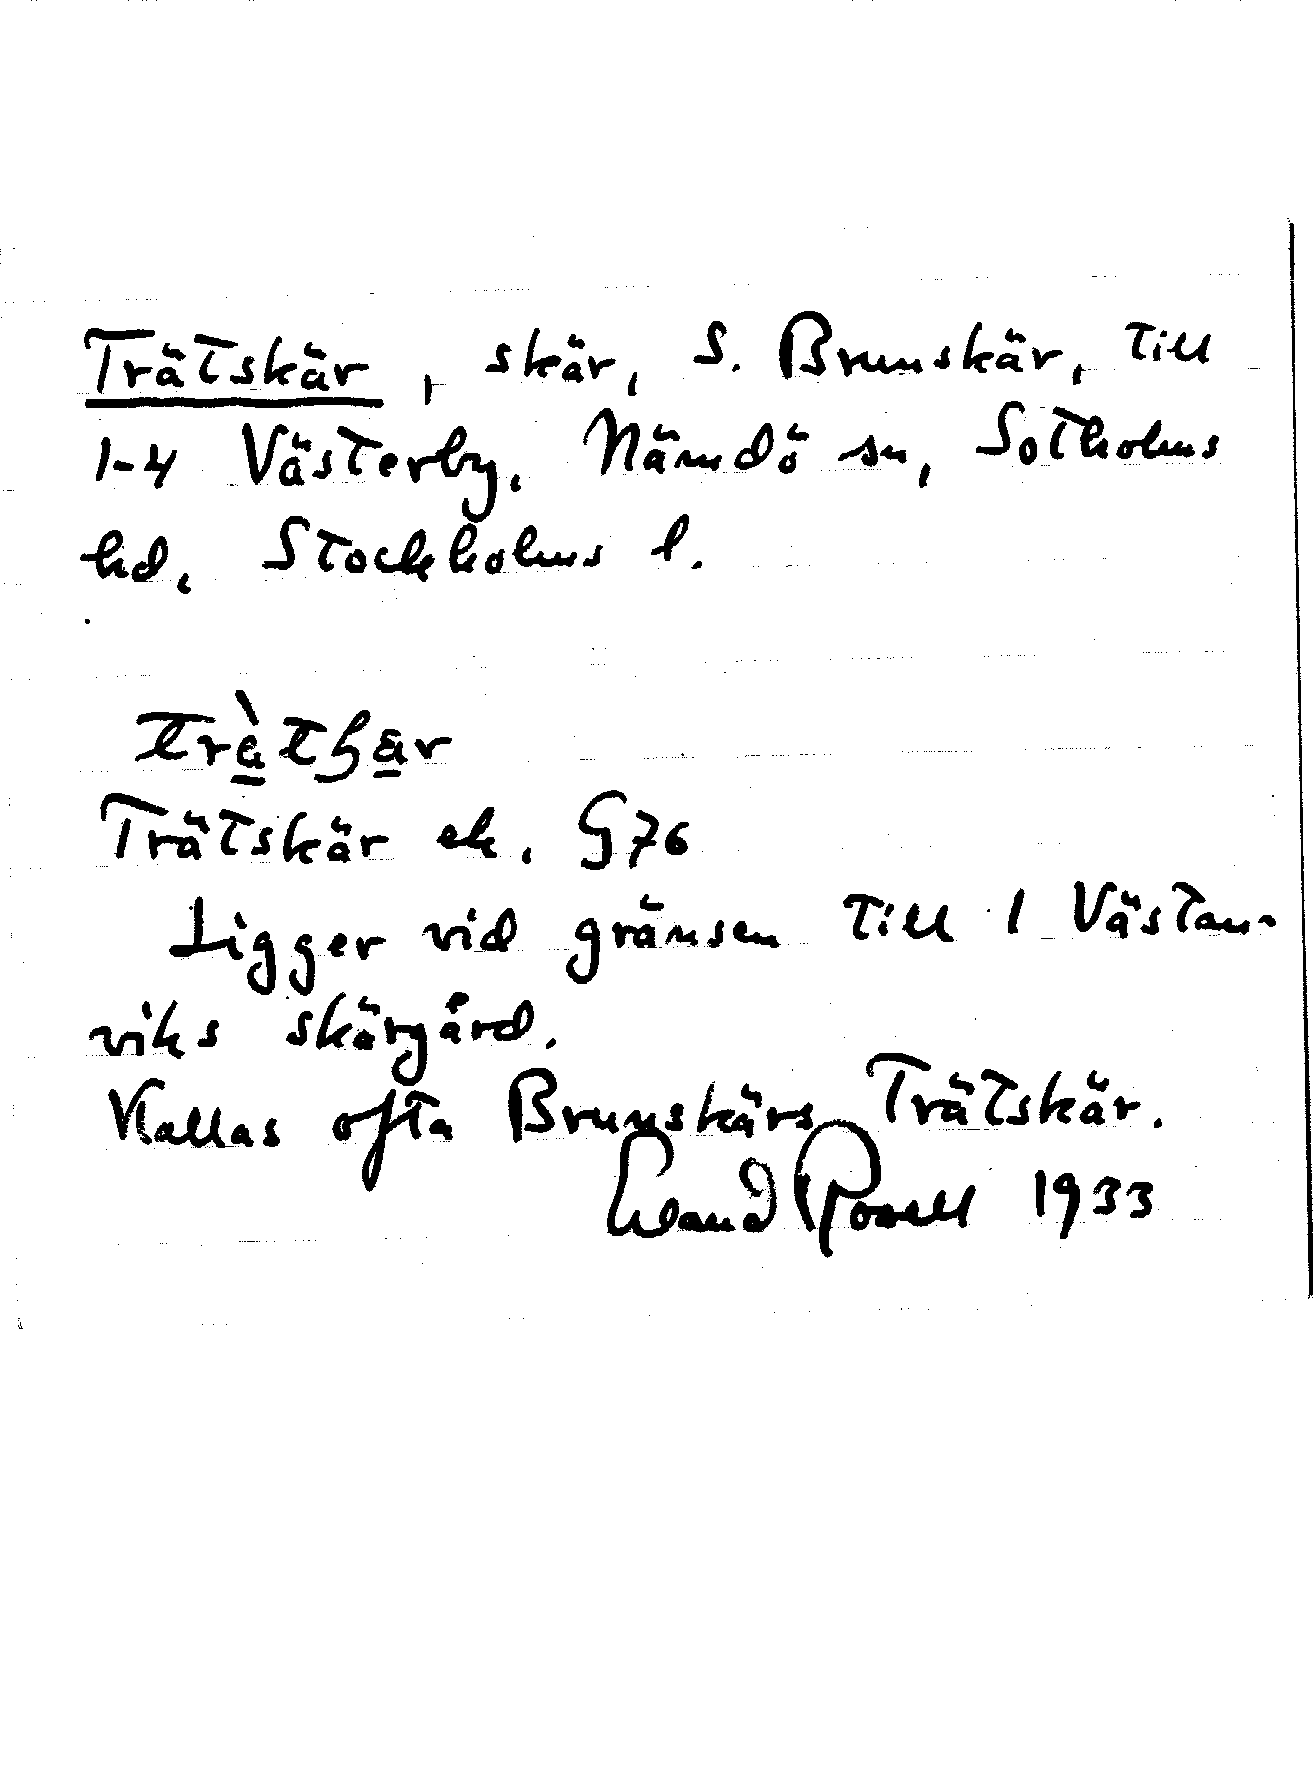 Trätskär, skär, S. Brunskär, till
1-4 Västerby. Nämdö sn, Sotholms
hd. Stockholms l.
Trätskär ek. G76
Ligger vid gränsen till 1 Västan-
viks skärgård.
Kallas ofta Brunskärs Trätskär.
1933